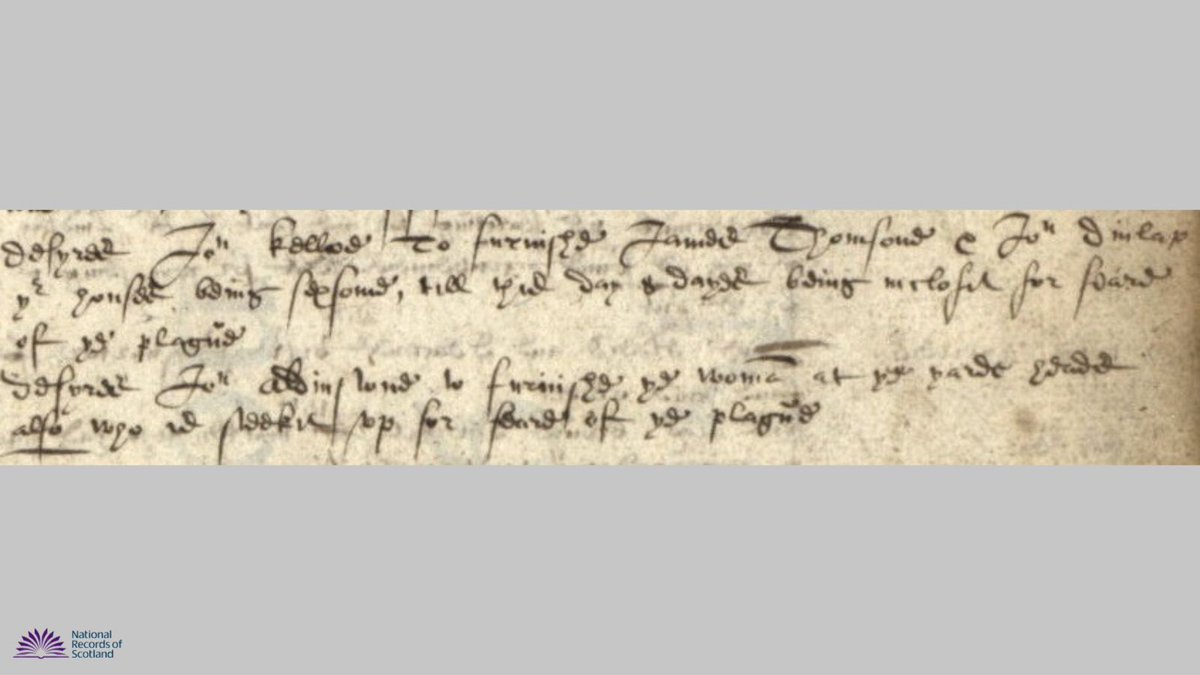 desyres Jon kelloe To furnishe James Thomsone & Jon dinlap
yr houses being sexsome, till this day & dayes being inclosit for feare
of ye plague
desyres Jon to furnishe ye woman at ye yards heades
also who is steekit up for feare of ye plague
National
Records of
Scotland